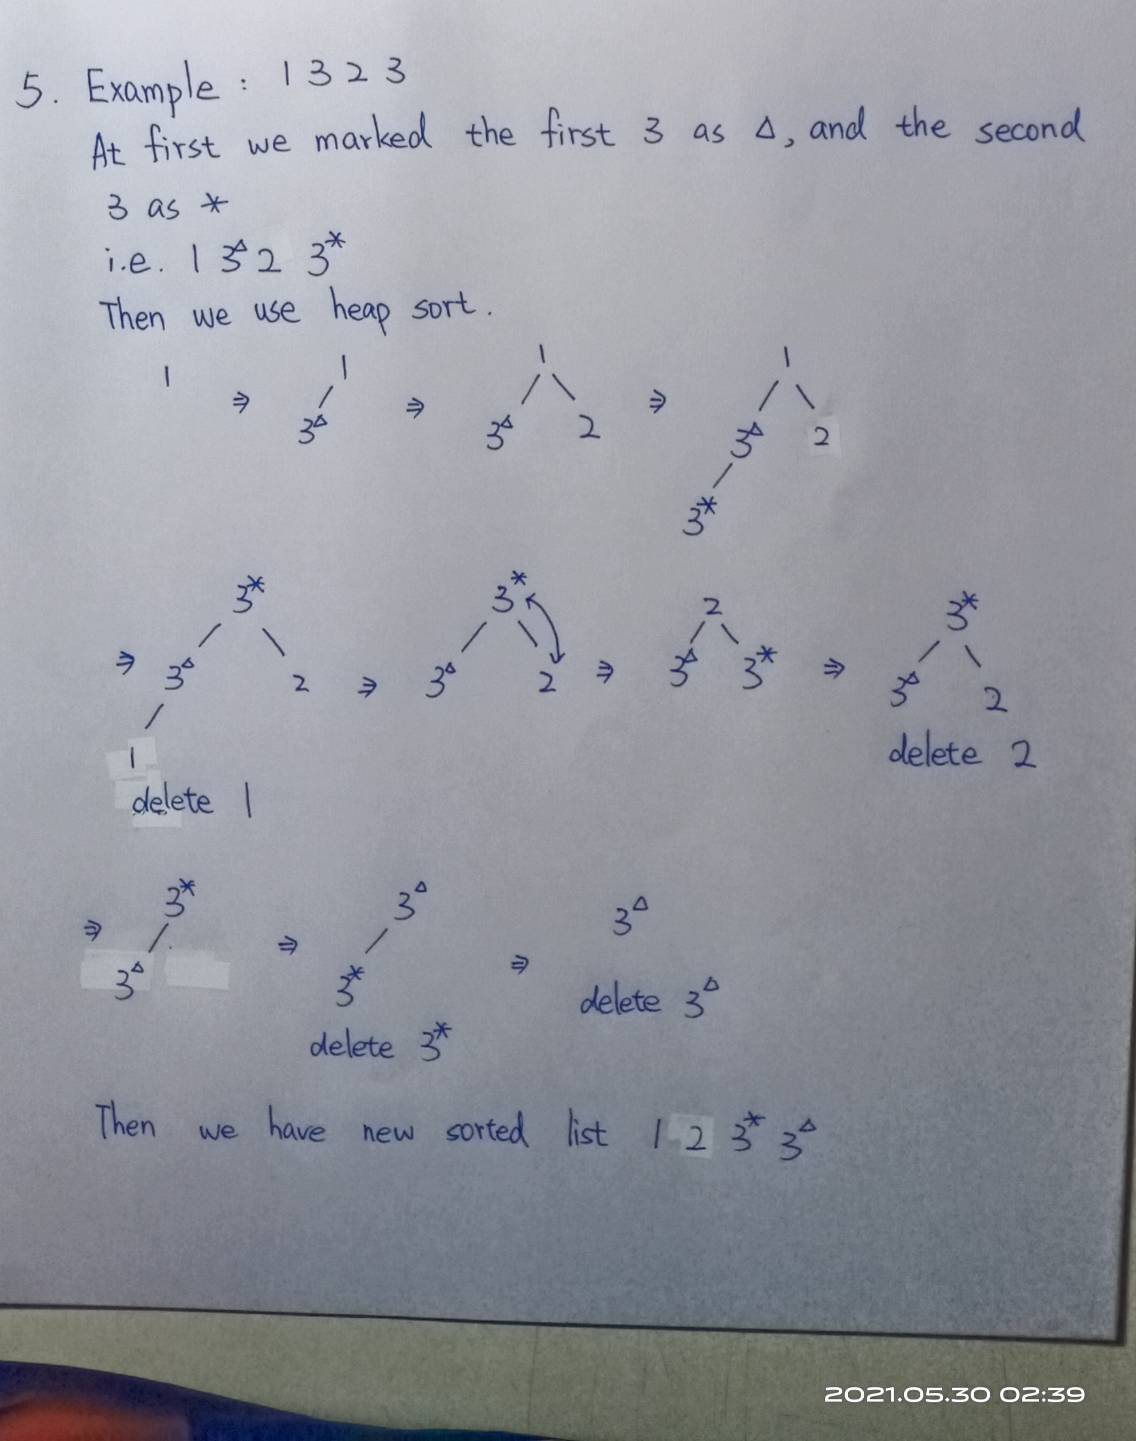 5. Example : 1 3 2 3
At first we marked the first 3 as △, and the second
3 as *
i.e. 1 3△ 2 3*
Then we use heap sort.
1 ⇒ 1 3△ ⇒ 1 3△ 2 ⇒ 1 3△ 2 3*
⇒ 3* 3△ 2 1 ⇒ 3* 3△ 2 ⇒ 2 3△ 3* ⇒ 3* 3△ 2
delete 1 delete 2
⇒ 3* 3△ ⇒ 3△ 3* ⇒ 3△
delete 3* delete 3△
Then we have new sorted list 1 2 3* 3△
2021.05.30 02:39